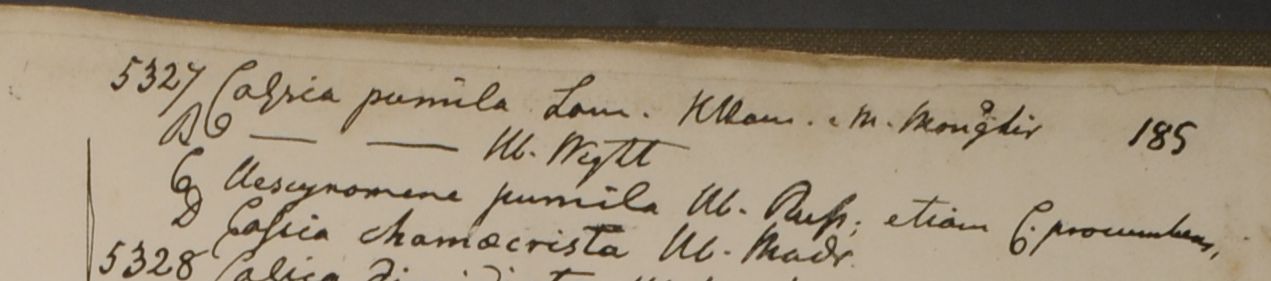 5327 Cassia pumila Lam. HHam. e M. Monghir 185
B — — Hb. Wight
C Aescynomene pumila Hb. Russ; etiam C. procumbens,
D Cassia chamaecrista Hb. Madr.
5328 Cassia